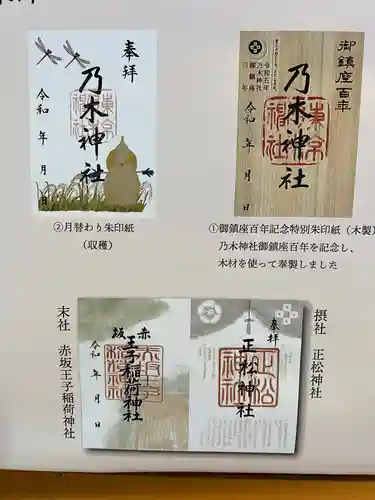 奉拝
乃木神社
令和 年 月 日
②月替わり朱印紙
(収穫)
御鎮座百年
乃木神社
令和 年 月 日
①御鎮座百年記念特別朱印紙(木製)
乃木神社御鎮座百年を記念し、
木材を使って奉製しました
末社 赤坂王子稲荷神社
赤坂
王子稲荷神社
令和 年 月 日
奉拝
正松神社
摂社 正松神社